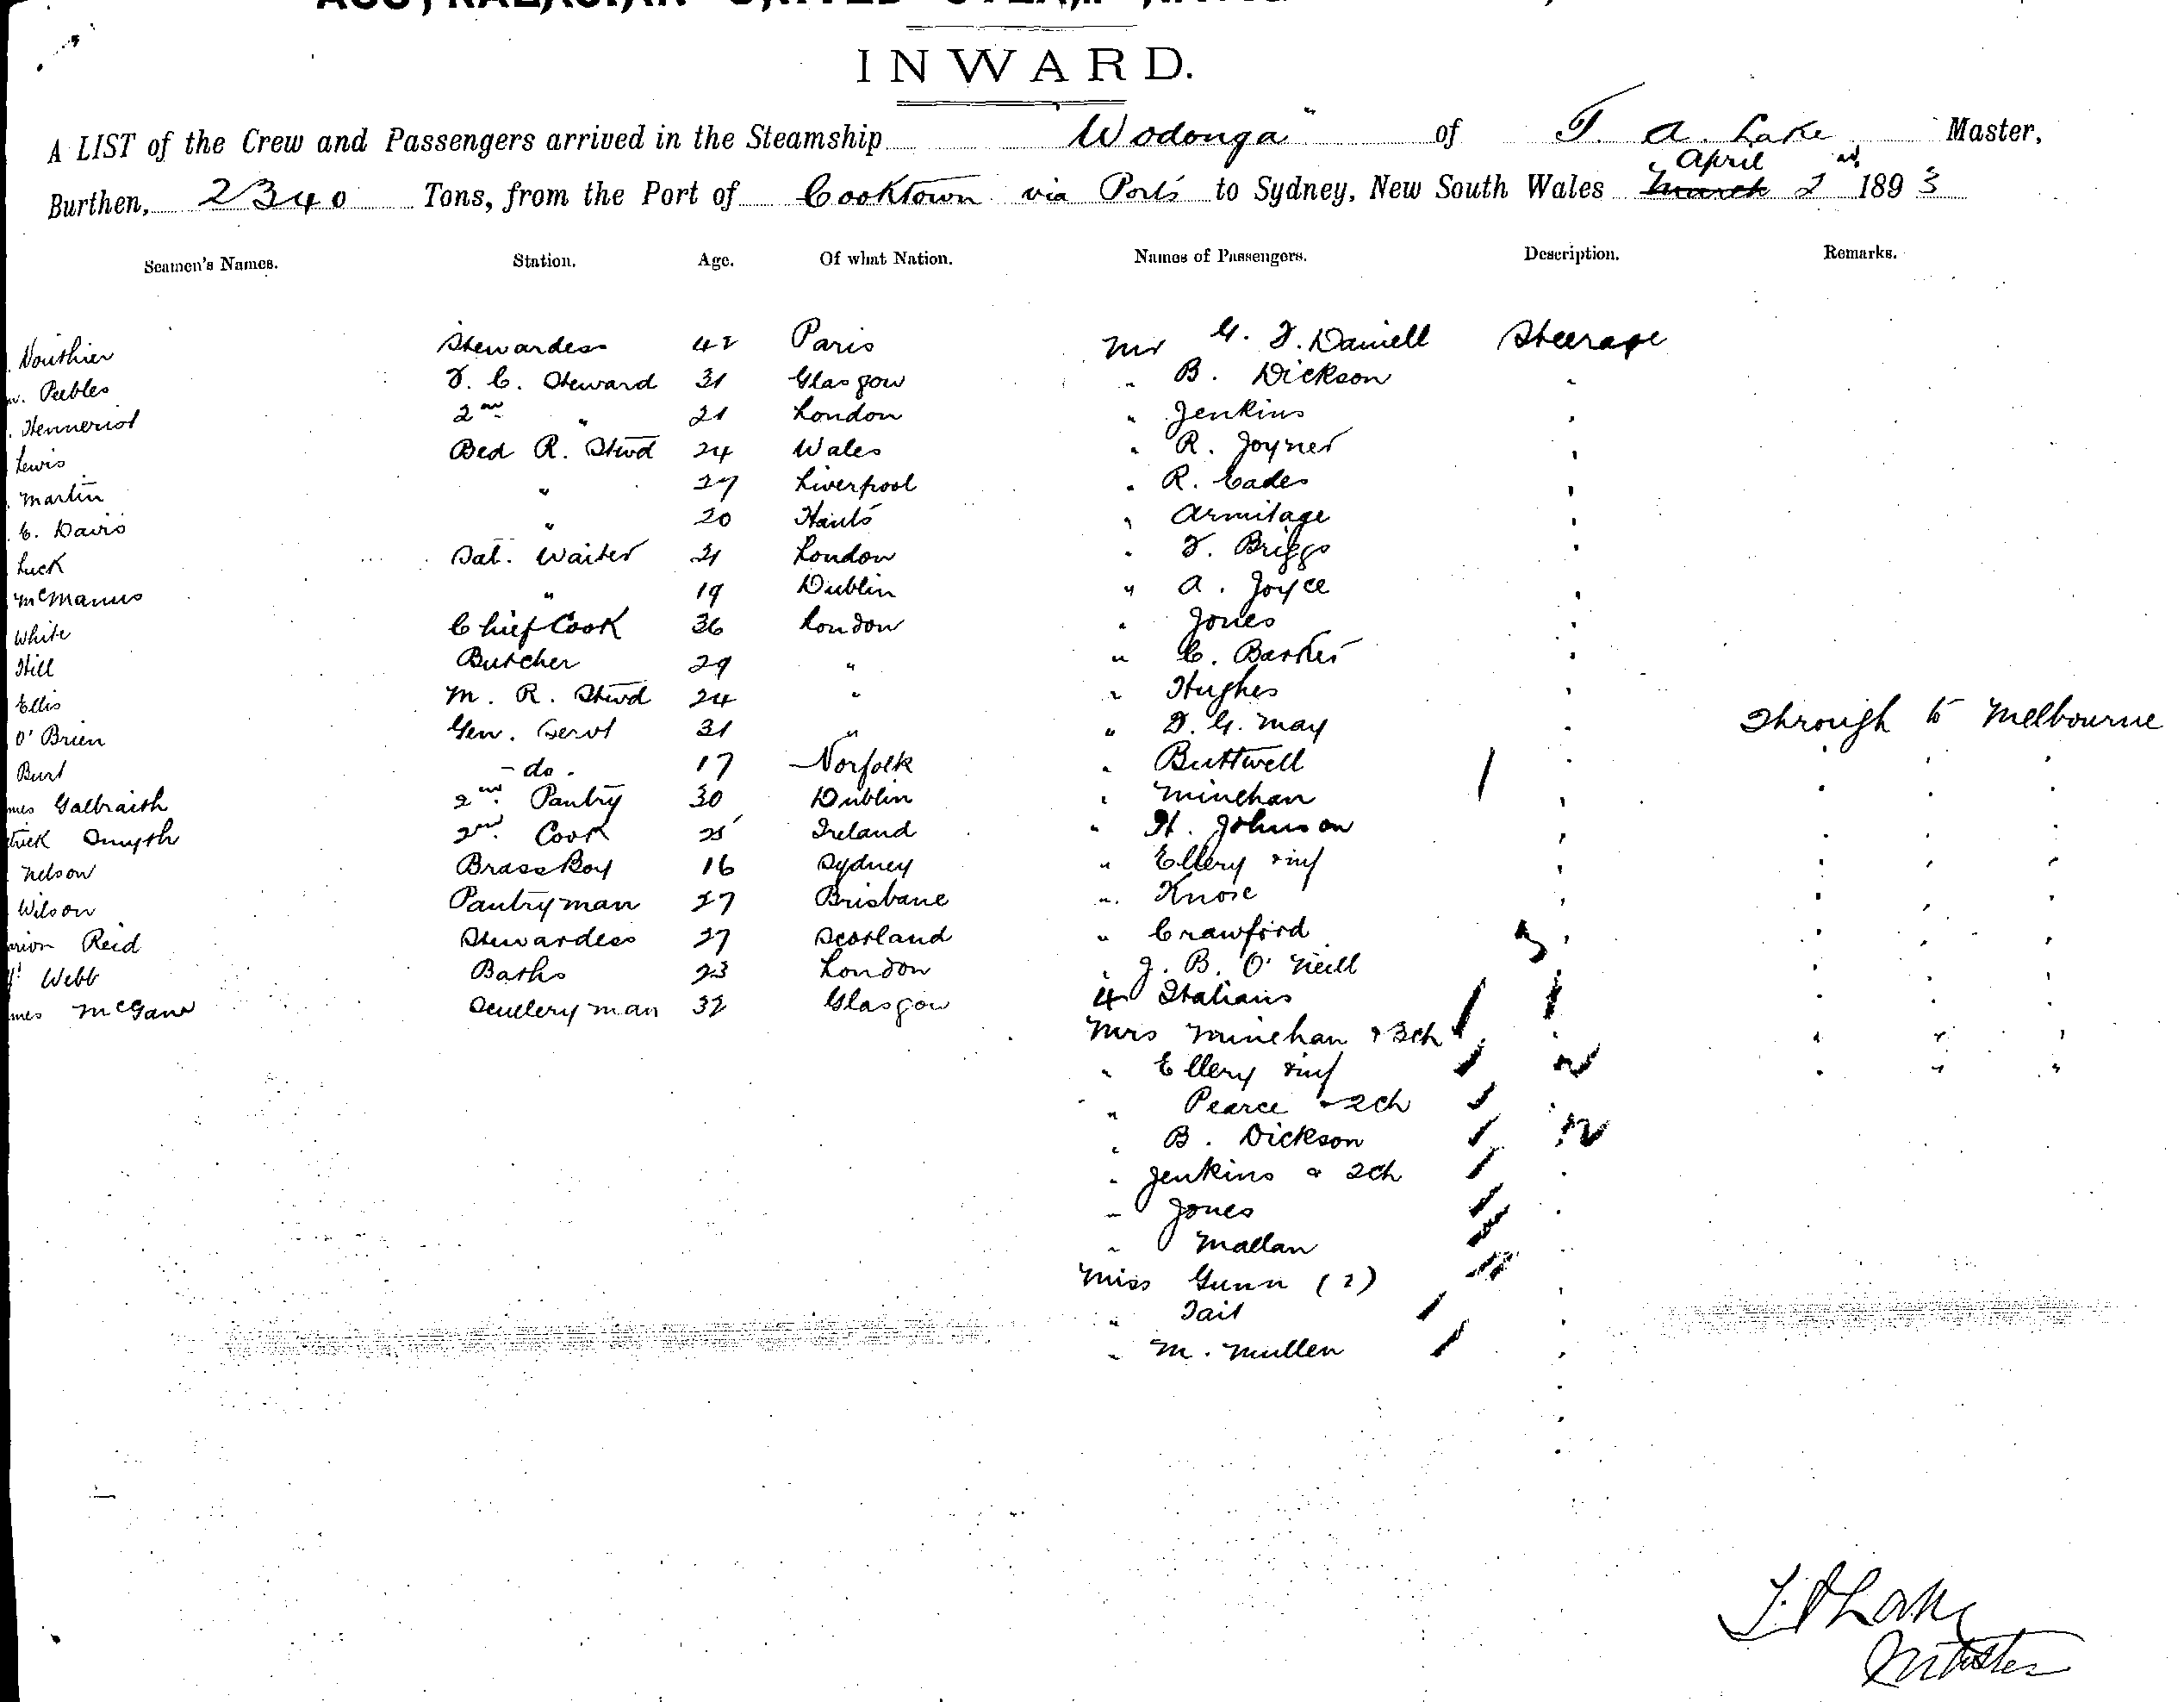 INWARD.
A LIST of the Crew and Passengers arrived in the Steamship "Wodonga" of T. A. Lake Master,
Burthen, 2340 Tons, from the Port of Cooktown via Ports to Sydney, New South Wales March April 2nd 1893
Seamen's Names. Station. Age. Of what Nation. Names of Passengers. Description. Remarks.
Nouthier Stewardess 42 Paris Mr G. F. Daniell Steerage
Peebles F. C. Steward 31 Glasgow " B. Dickson "
Henneriot 2nd " 21 London " Jenkins "
Lewis Bed R. Stwd 24 Wales " R. Joyner "
Martin " 27 Liverpool " R. Eades "
E. Davis " 20 Hants " Armitage "
Luck Sal. Waiter 21 London " F. Briggs "
McManus " 19 Dublin " A. Joyce "
White Chief Cook 36 London " Jones "
Hill Butcher 29 " " C. Barker "
Ellis M. R. Stwd 24 " " Hughes "
O'Brien Gen. Servt 31 " " D. G. May " Through to Melbourne
Burt - do - 17 Norfolk " Buttwell " " " "
Galbraith 2nd Pantry 30 Dublin " Minehan " " " "
Smyth 2nd Cook 25 Ireland " H. Johnson " " " "
Nelson Brass Boy 16 Sydney " Ellery & inf " " " "
Wilson Pantryman 27 Brisbane " Knose " " " "
Reid Stewardess 27 Scotland " Crawford " " " "
Webb Baths 23 London " J. B. O'Neill " " "
McGaw Scullery man 32 Glasgow 4 Italians " " "
Mrs Minehan & 3ch " " " "
" Ellery & inf " " "
" Pearce & 2ch "
" B. Dickson
" Jenkins & 2ch "
" Jones "
" Mallan "
Miss Gunn (2) "
" Tait "
" M. Mullen "
T. A. Lake
Master